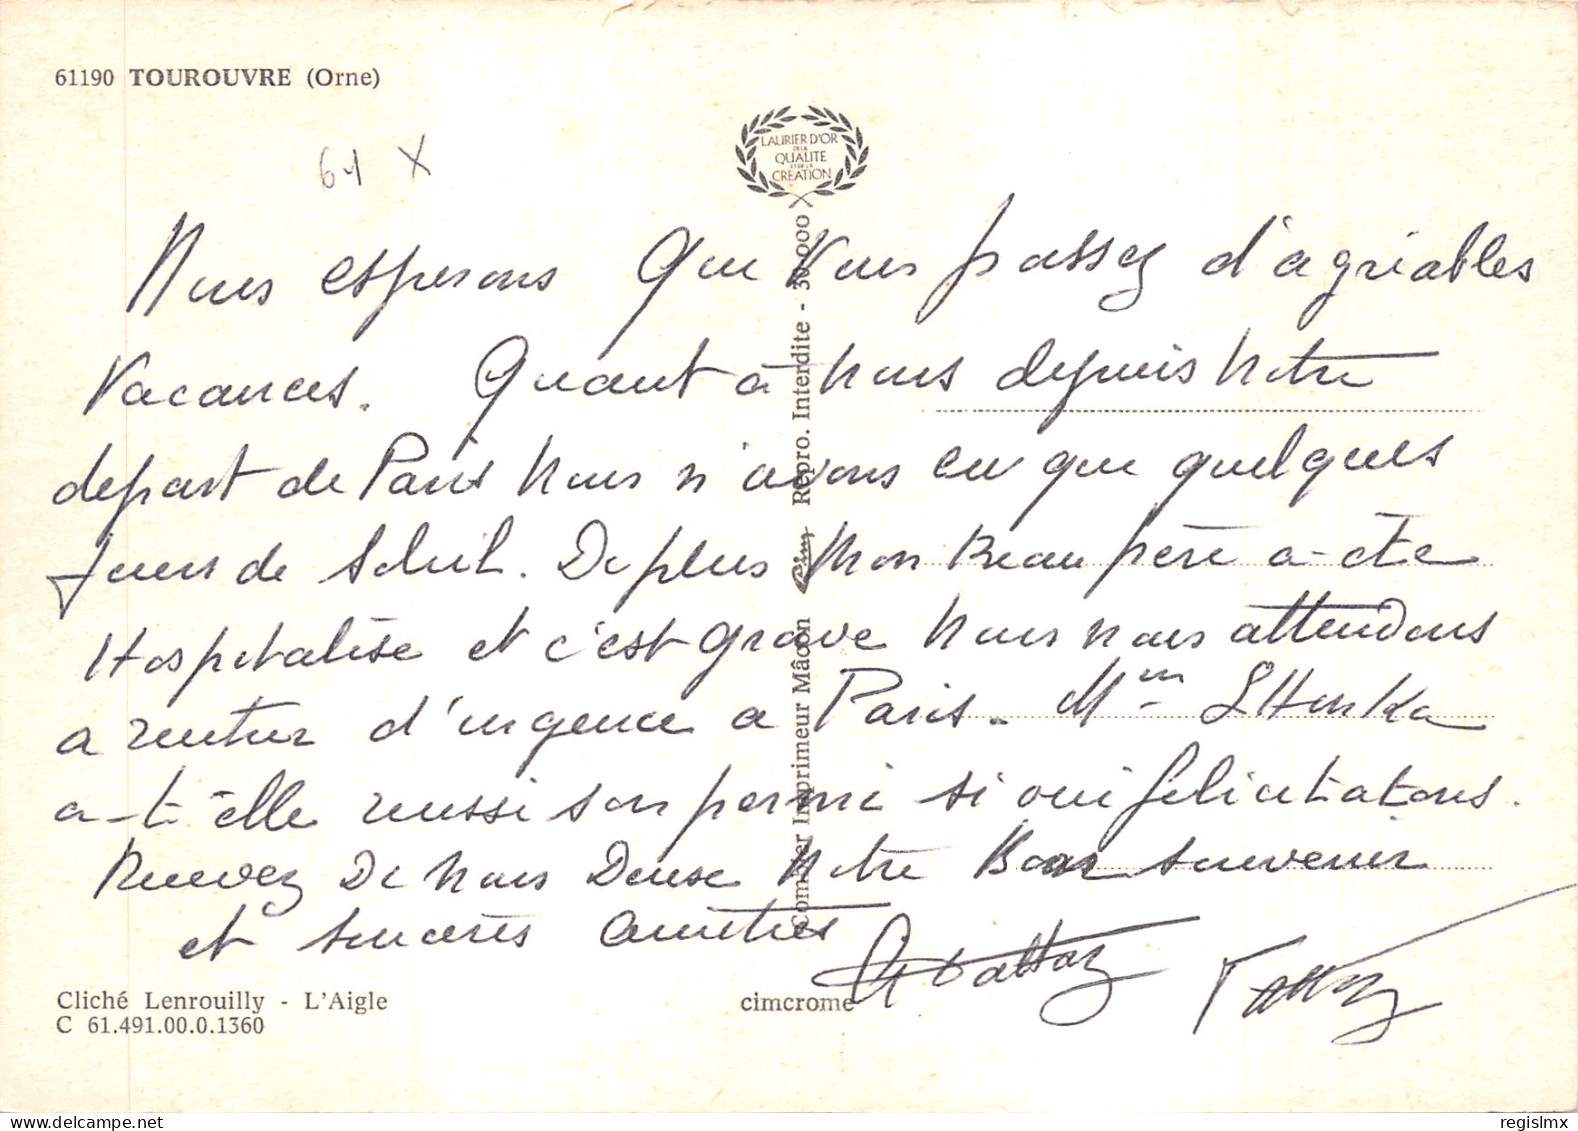 61190 TOUROUVRE (Orne)
LAURIER D'OR
DE LA
QUALITE
ET DE LA
CREATION
61 X
Nous esperons Que Vous passez d'agréables
Vacances. Quant à nous depuis notre
depart de Paris nous n'avons eu que quelques
jours de Soleil. De plus mon Beau père a-été
Hospitalisé et c'est grave nous nous attendons
a rentrer d'urgence a Paris. Mm
a-t-elle reussi son permi si oui felicitations.
Recevez De nous Deux Notre Bon souvenir
et sincères amitiés
Combier Imprimeur Mâcon Cim Repro. Interdite - 30.000
Cliché Lenrouilly - L'Aigle
C 61.491.00.0.1360
cimcrome
regislmx